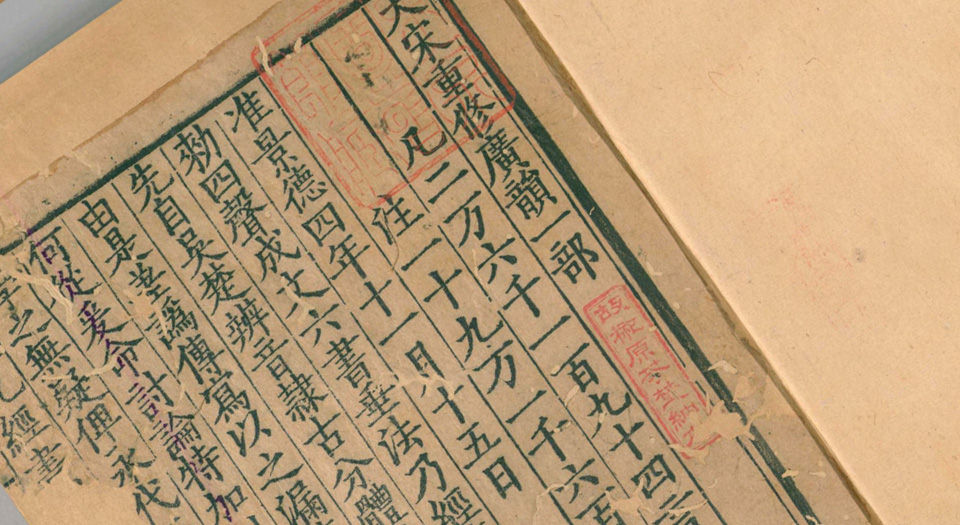 大宋重修廣韻一部
凡二万六千一百九十四言
注一十九万一千六百
准景德四年十一月十五日
勑四聲成文六書垂法乃經
先自吳楚辨音隷古分體
由是差譌傳寫以之漏
何從爰命討論特加
之無疑俾永代
經書